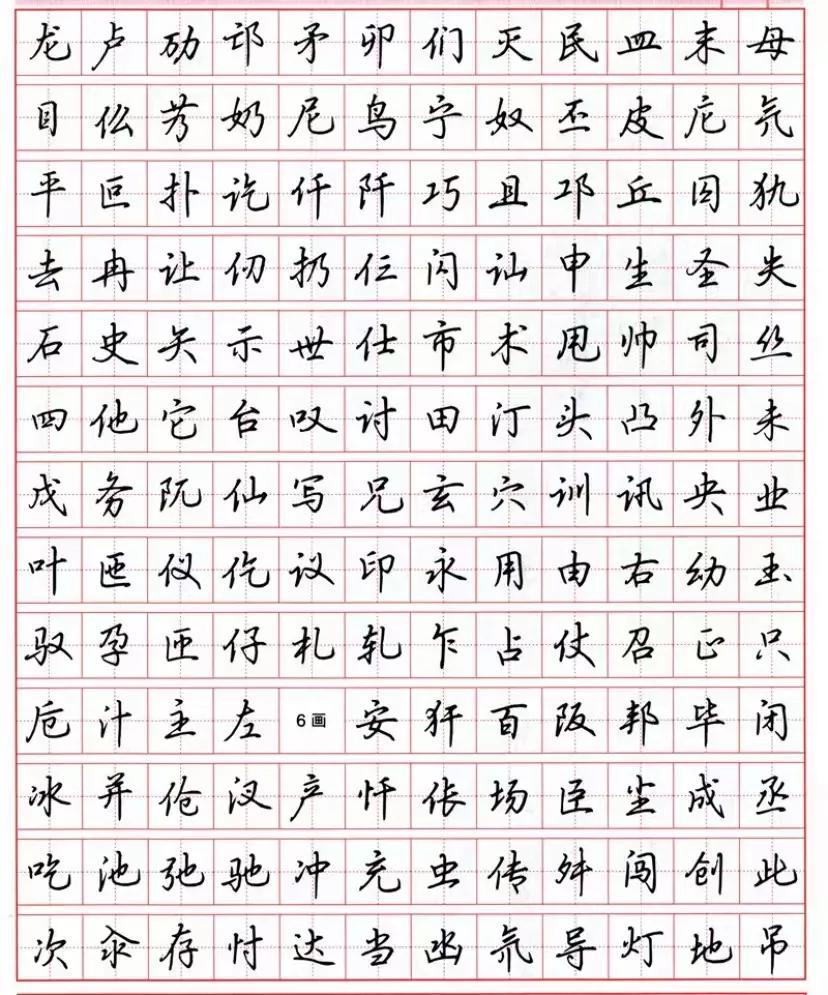 龙卢劢邙矛卯们灭民皿末母
目仫艿奶尼鸟宁奴丕皮庀气
平叵扑讫仟阡巧且邛丘囚犰
去冉让仞扔仨闪讪申生圣失
石史矢示世仕市术甩帅司丝
四他它台叹讨田汀头凸外未
戊务阢仙写兄玄穴训讯央业
叶匜仪仡议印永用由右幼玉
驭孕匝仔札轧乍占仗召正只
卮汁主左6画安犴百阪邦毕闭
冰并伧汊产忏伥场臣尘成丞
吃池弛驰冲充虫传舛闯创此
次汆存忖达当凼氘导灯地吊